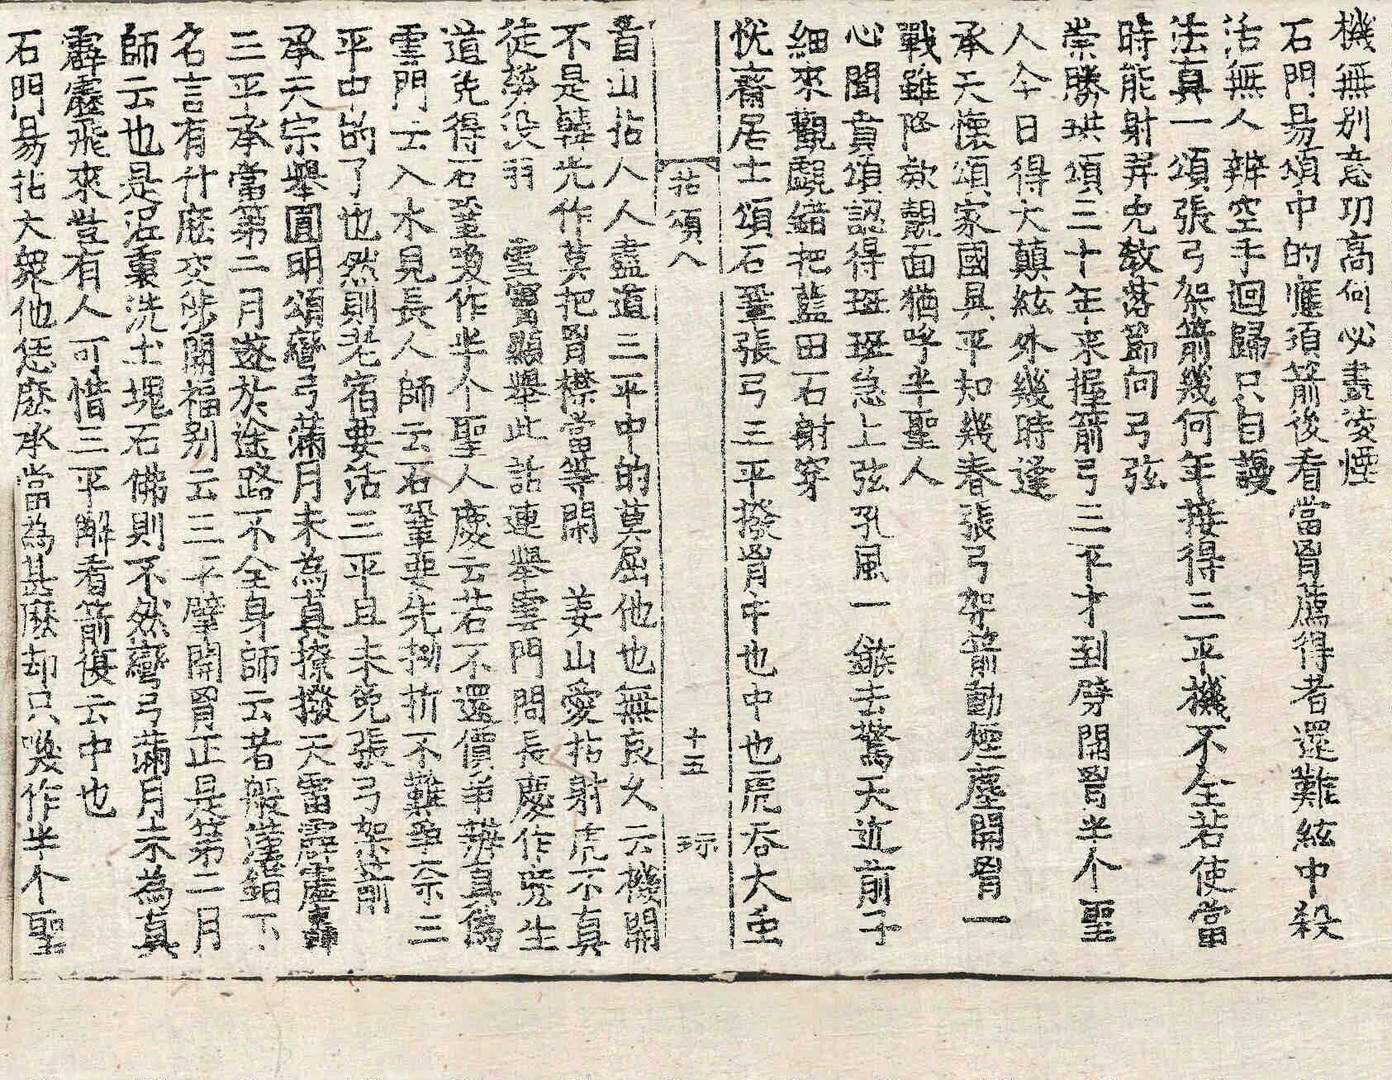 機無別意功高何必畫凌煙
石門易頌中的應須箭後看當胷薦得者還難絃中殺
活無人辨空手迴歸只自謾
法真一頌張弓架箭幾何年接得三平機不全若使當
時能射羿免教落節向弓弦
崇勝珙頌三十年来握箭弓三平才到劈開胷半个聖
人今日得大顛絃外幾時逢
承天懷頌家國具平知幾春張弓架箭動煙塵開胷一
戰雖降欵覿面猶呼半聖人
心聞賁頌認得斑斑急上弦孔風一鏃去驚天近前子
細來觀覷錯把藍田石射穿
悅齋居士頌石鞏張弓三平撥胷中也中也虎吞大虫
拈頌八 十五 珎
首山拈人人盡道三平中的莫屈他也無良久云機關
不是韓光作莫把胷襟當等閑 姜山愛拈射虎不真
徒勞没羽 雪竇顯舉此話連舉雲門問長慶作麽生
道免得石鞏喚作半个聖人慶云若不還價爭辨真偽
雲門云入水見長人師云石鞏要先拗折不難爭奈三
平中的了也然則老宿要活三平且未免張弓架箭
承天宗舉圓明頌彎弓滿月未為真撩撥天雷霹靂
三平承當第二月遂於途路不全身師云者般漢錯下
名言有什麽交涉開福別云三平擘開胷正是第二月
師云也是泥裏洗土塊石佛則不然彎弓滿月未為真
霹靂飛來豈有人可惜三平解看箭復云中也
石門易拈大衆他恁麽承當為甚麽却只喚作半个聖